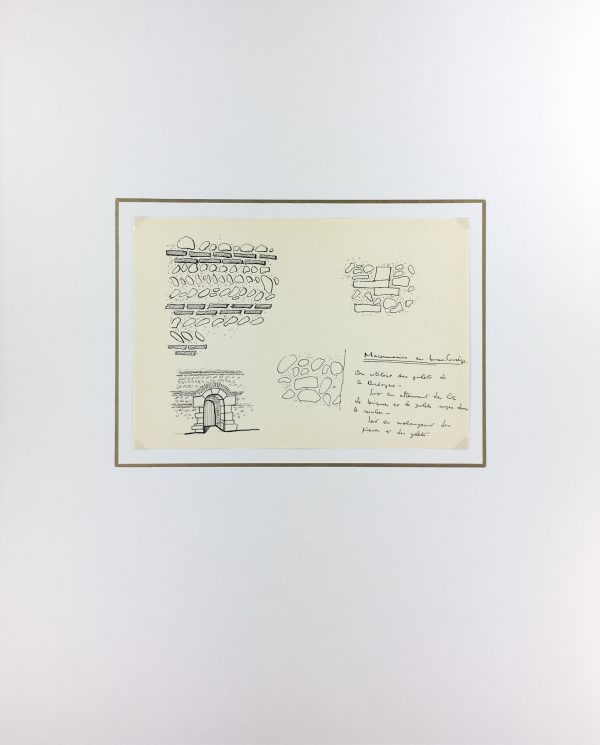 Maçonneries en basse Corrèze
On utilise des galets de
la Dordogne -
Soit en alternant des lits
de brique et de galets noyés dans
le mortier -
Soit en mélangeant des
pierres et des galets.